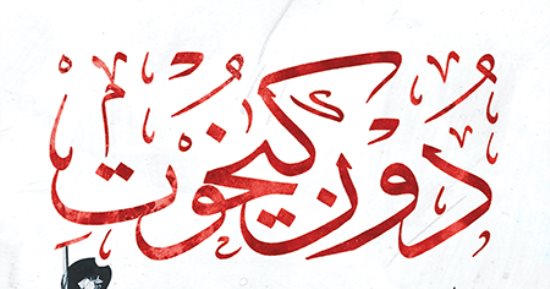 دُوْن كيخُوْت